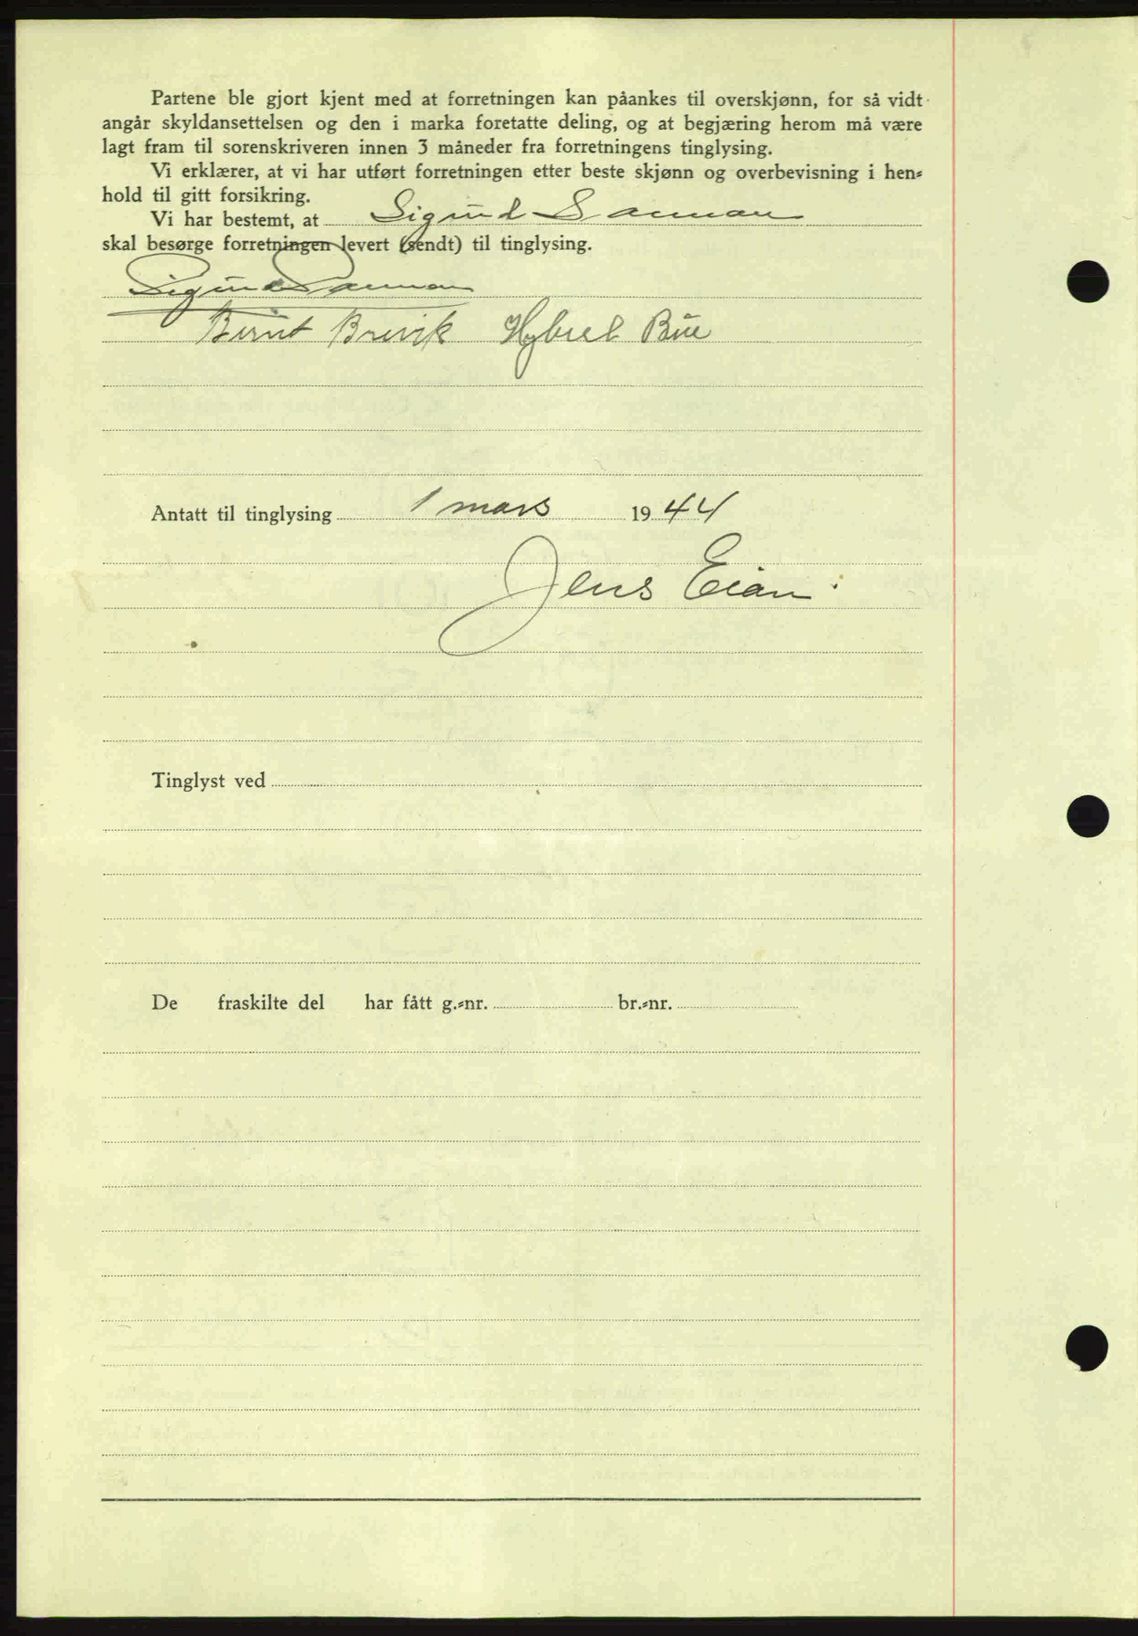 Partene ble gjort kjent med at forretningen kan påankes til overskjønn, for så vidt
angår skyldansettelsen og den i marka foretatte deling, og at begjæring herom må være
lagt fram til sorenskriveren innen 3 måneder fra forretningens tinglysing.
Vi erklærer, at vi har utført forretningen etter beste skjønn og overbevisning i hen=
hold til gitt forsikring.
Vi har bestemt, at Sigurd Sanman
skal besørge forretningen levert (sendt) til tinglysing.
Sigurd Sanman
Bernt Brevik Bue
Antatt til tinglysing 1 mars 1944
Jens Eian
Tinglyst ved
De fraskilte del har fått g.=nr. br.=nr.